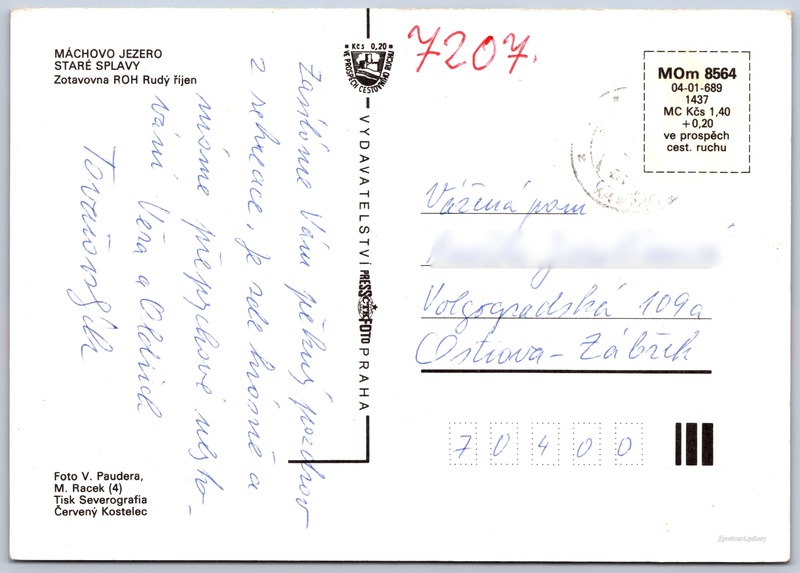 MÁCHOVO JEZERO
STARÉ SPLAVY
Zotavovna ROH Rudý říjen
Zasíláme Vám pěkný pozdrav
z rekreace, je zde krásně a
máme přepychové ubyto-
vání Věra a Oldřich
Foto V. Paudera,
M. Racek (4)
Tisk Severografia
Červený Kostelec
Kčs 0,20
VE PROSPĚCH CESTOVNÍHO RUCHU
VYDAVATELSTVÍ PRESSFOTO PRAHA
ČTK
7207.
MOm 8564
04-01-689
1437
MC Kčs 1,40
+0,20
ve prospěch
cest. ruchu
Vážená paní
Volgogradská 109a
Ostrava-Zábřeh
70400
postcard.gallery